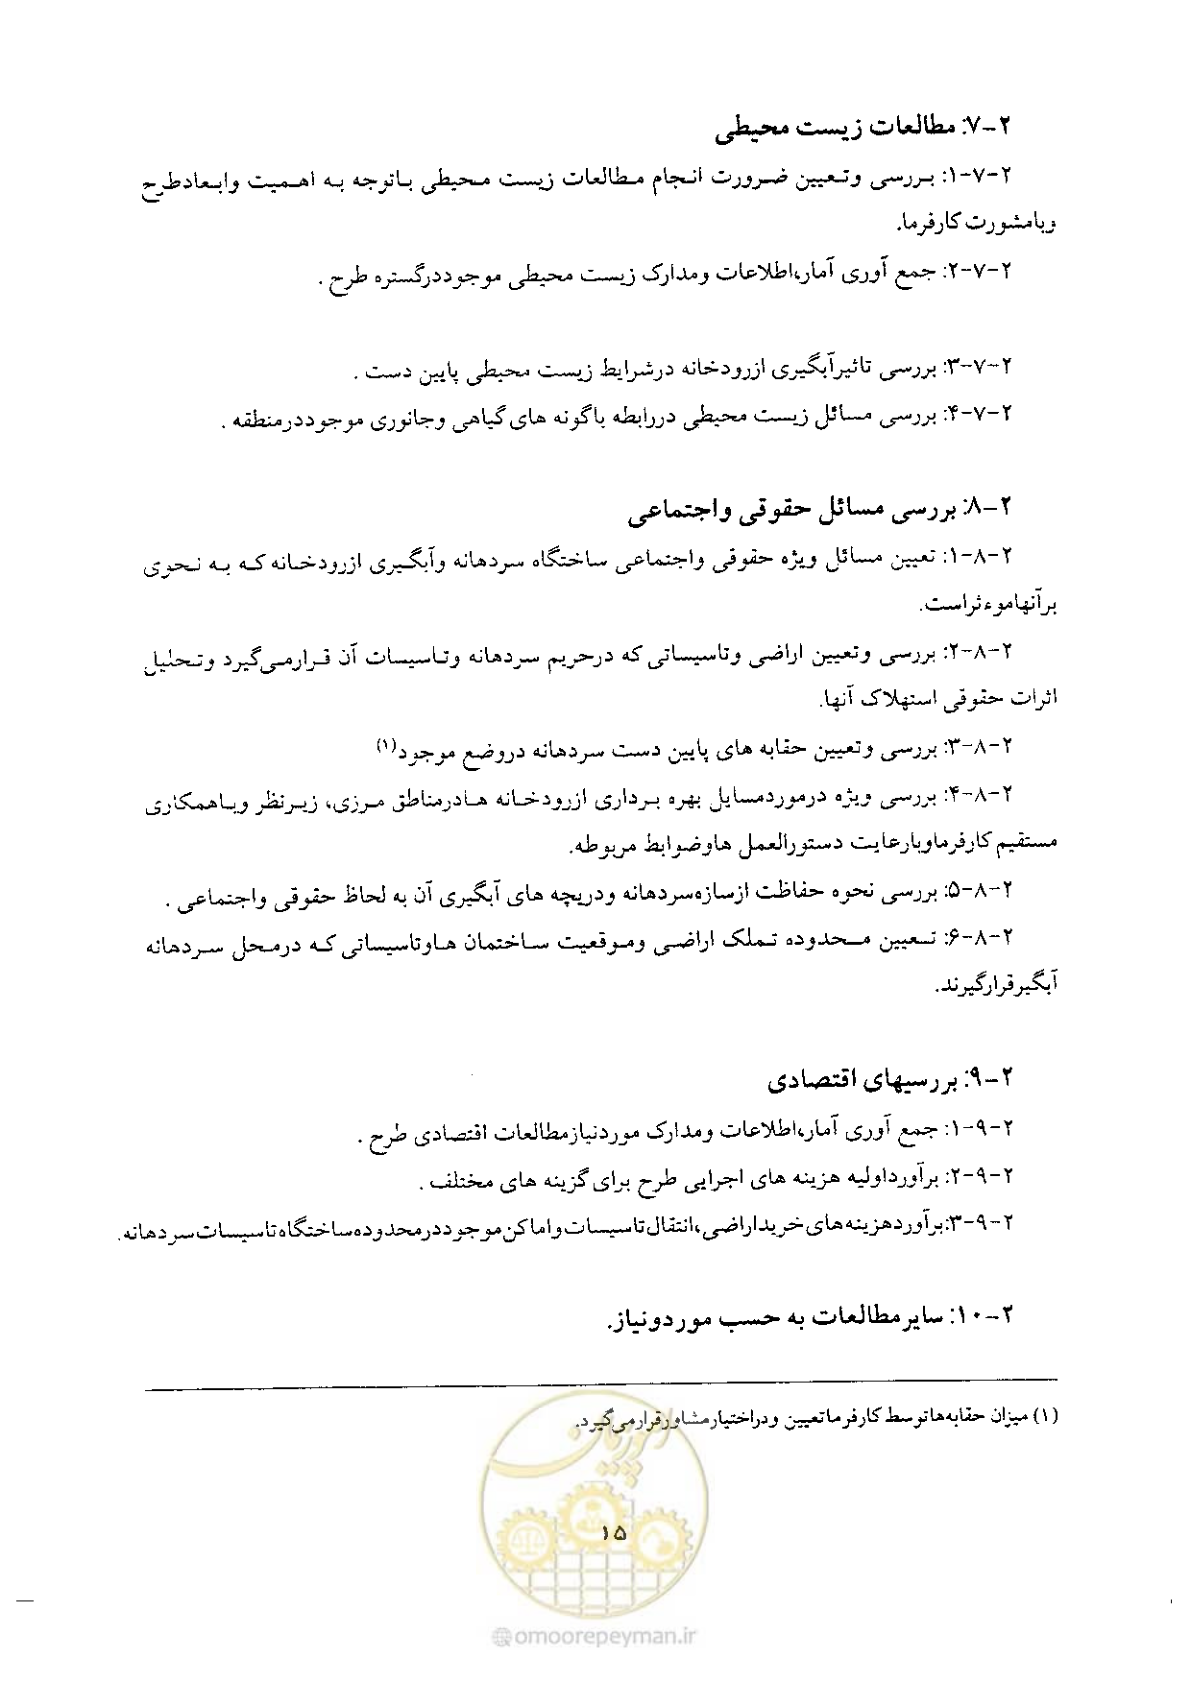 ۲-۷: مطالعات زیست محیطی
۲-۷-۱: بررسی وتعیین ضرورت انجام مطالعات زیست محیطی باتوجه به اهمیت وابعادطرح
وبامشورت کارفرما.
۲-۷-۲: جمع آوری آمار،اطلاعات ومدارک زیست محیطی موجوددرگستره طرح .
۲-۷-۳: بررسی تاثیرآبگیری ازرودخانه درشرایط زیست محیطی پایین دست .
۲-۷-۴: بررسی مسائل زیست محیطی دررابطه باگونه های گیاهی وجانوری موجوددرمنطقه .
۲-۸: بررسی مسائل حقوقی واجتماعی
۲-۸-۱: تعیین مسائل ویژه حقوقی واجتماعی ساختگاه سردهانه وآبگیری ازرودخانه که به نحوی
برآنهاموءثراست.
۲-۸-۲: بررسی وتعیین اراضی وتاسیساتی که درحریم سردهانه وتاسیسات آن قرارمی‌گیرد وتحلیل
اثرات حقوقی استهلاک آنها.
۲-۸-۳: بررسی وتعیین حقابه های پایین دست سردهانه دروضع موجود(۱)
۲-۸-۴: بررسی ویژه درموردمسایل بهره برداری ازرودخانه هادرمناطق مرزی، زیرنظر وباهمکاری
مستقیم کارفرماوبارعایت دستورالعمل هاوضوابط مربوطه.
۲-۸-۵: بررسی نحوه حفاظت ازسازه‌سردهانه ودریچه های آبگیری آن به لحاظ حقوقی واجتماعی .
۲-۸-۶: تعیین محدوده تملک اراضی وموقعیت ساختمان هاوتاسیساتی که درمحل سردهانه
آبگیرقرارگیرند.
۲-۹: بررسیهای اقتصادی
۲-۹-۱: جمع آوری آمار،اطلاعات ومدارک موردنیازمطالعات اقتصادی طرح .
۲-۹-۲: برآورداولیه هزینه های اجرایی طرح برای گزینه های مختلف .
۲-۹-۳:برآوردهزینه‌های خریداراضی،انتقال تاسیسات واماکن موجوددرمحدوده‌ساختگاه تاسیسات سردهانه.
۲-۱۰: سایرمطالعات به حسب موردونیاز.
(۱) میزان حقابه‌هاتوسط کارفرماتعیین ودراختیارمشاورقرارمی‌گیرد.
امورپیمان
۱۵
@omoorepeyman.ir